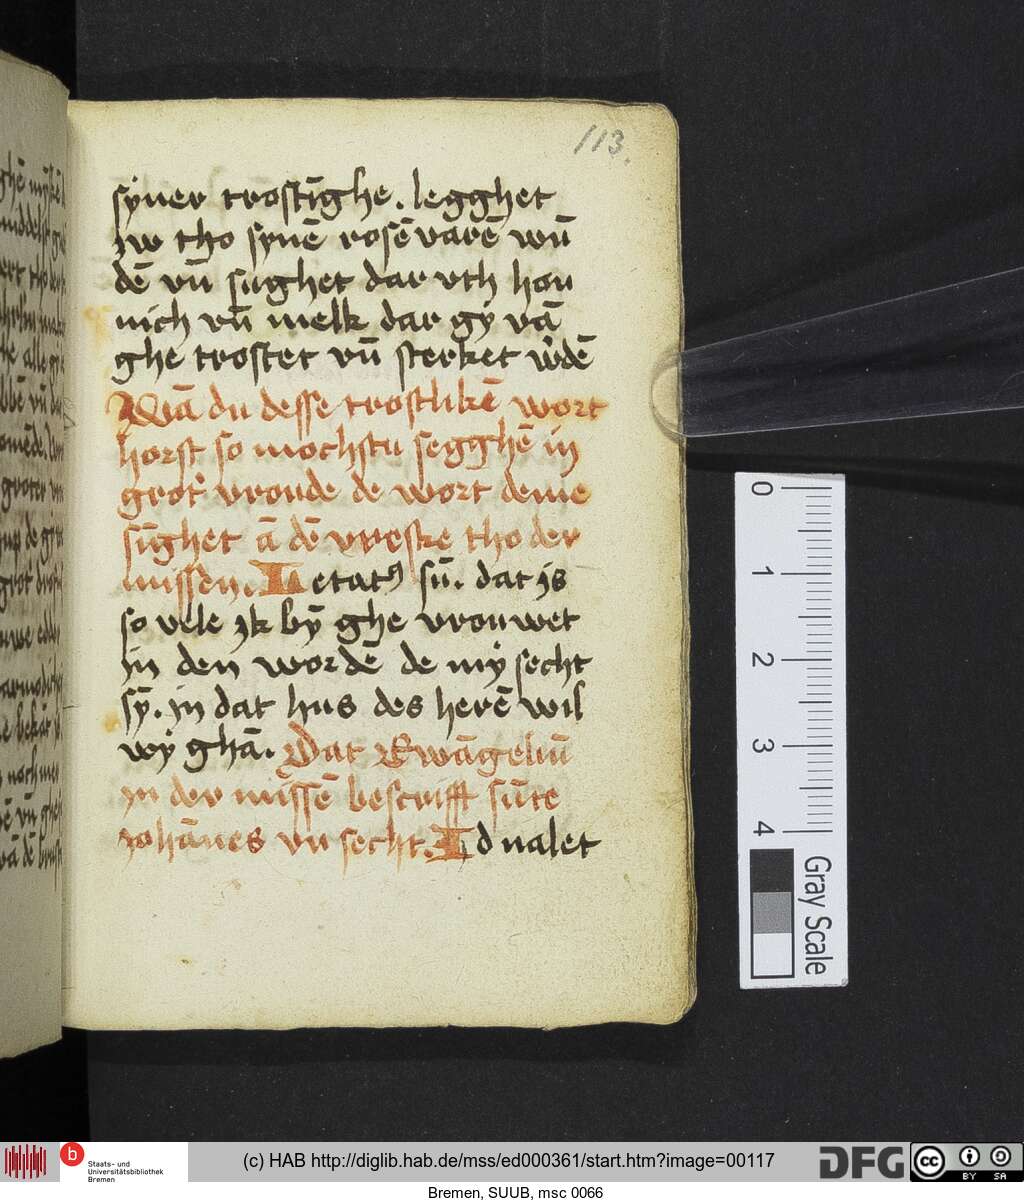 113.
syner trostīghe. legghet
yw tho synē rosēvarē wū
dē vn̄ sughet dar vth hon
nich vn̄ melk dar gy vā
ghe trostet vn̄ sterket wͤdē
Wā du desse trostlikē wort
horst so mochstu segghē in
grotͤ vroude de wort deme
sūghet ā dē vreske tho der
missen. Letatꝰ sū. dat ys
so vele yk bȳ ghe vrouwet
in den wordē de my secht
sȳ. in dat hus des herē wil
wy ghā. Dat Ewāgeliū
yn der missē bescrifft sūte
yohānes vn̄ secht. Id nalet
0
1
2
3
4
Gray Scale
b Staats- und
Universitätsbibliothek
Bremen
(c) HAB http://diglib.hab.de/mss/ed000361/start.htm?image=00117
DFG
cc BY SA
Bremen, SUUB, msc 0066